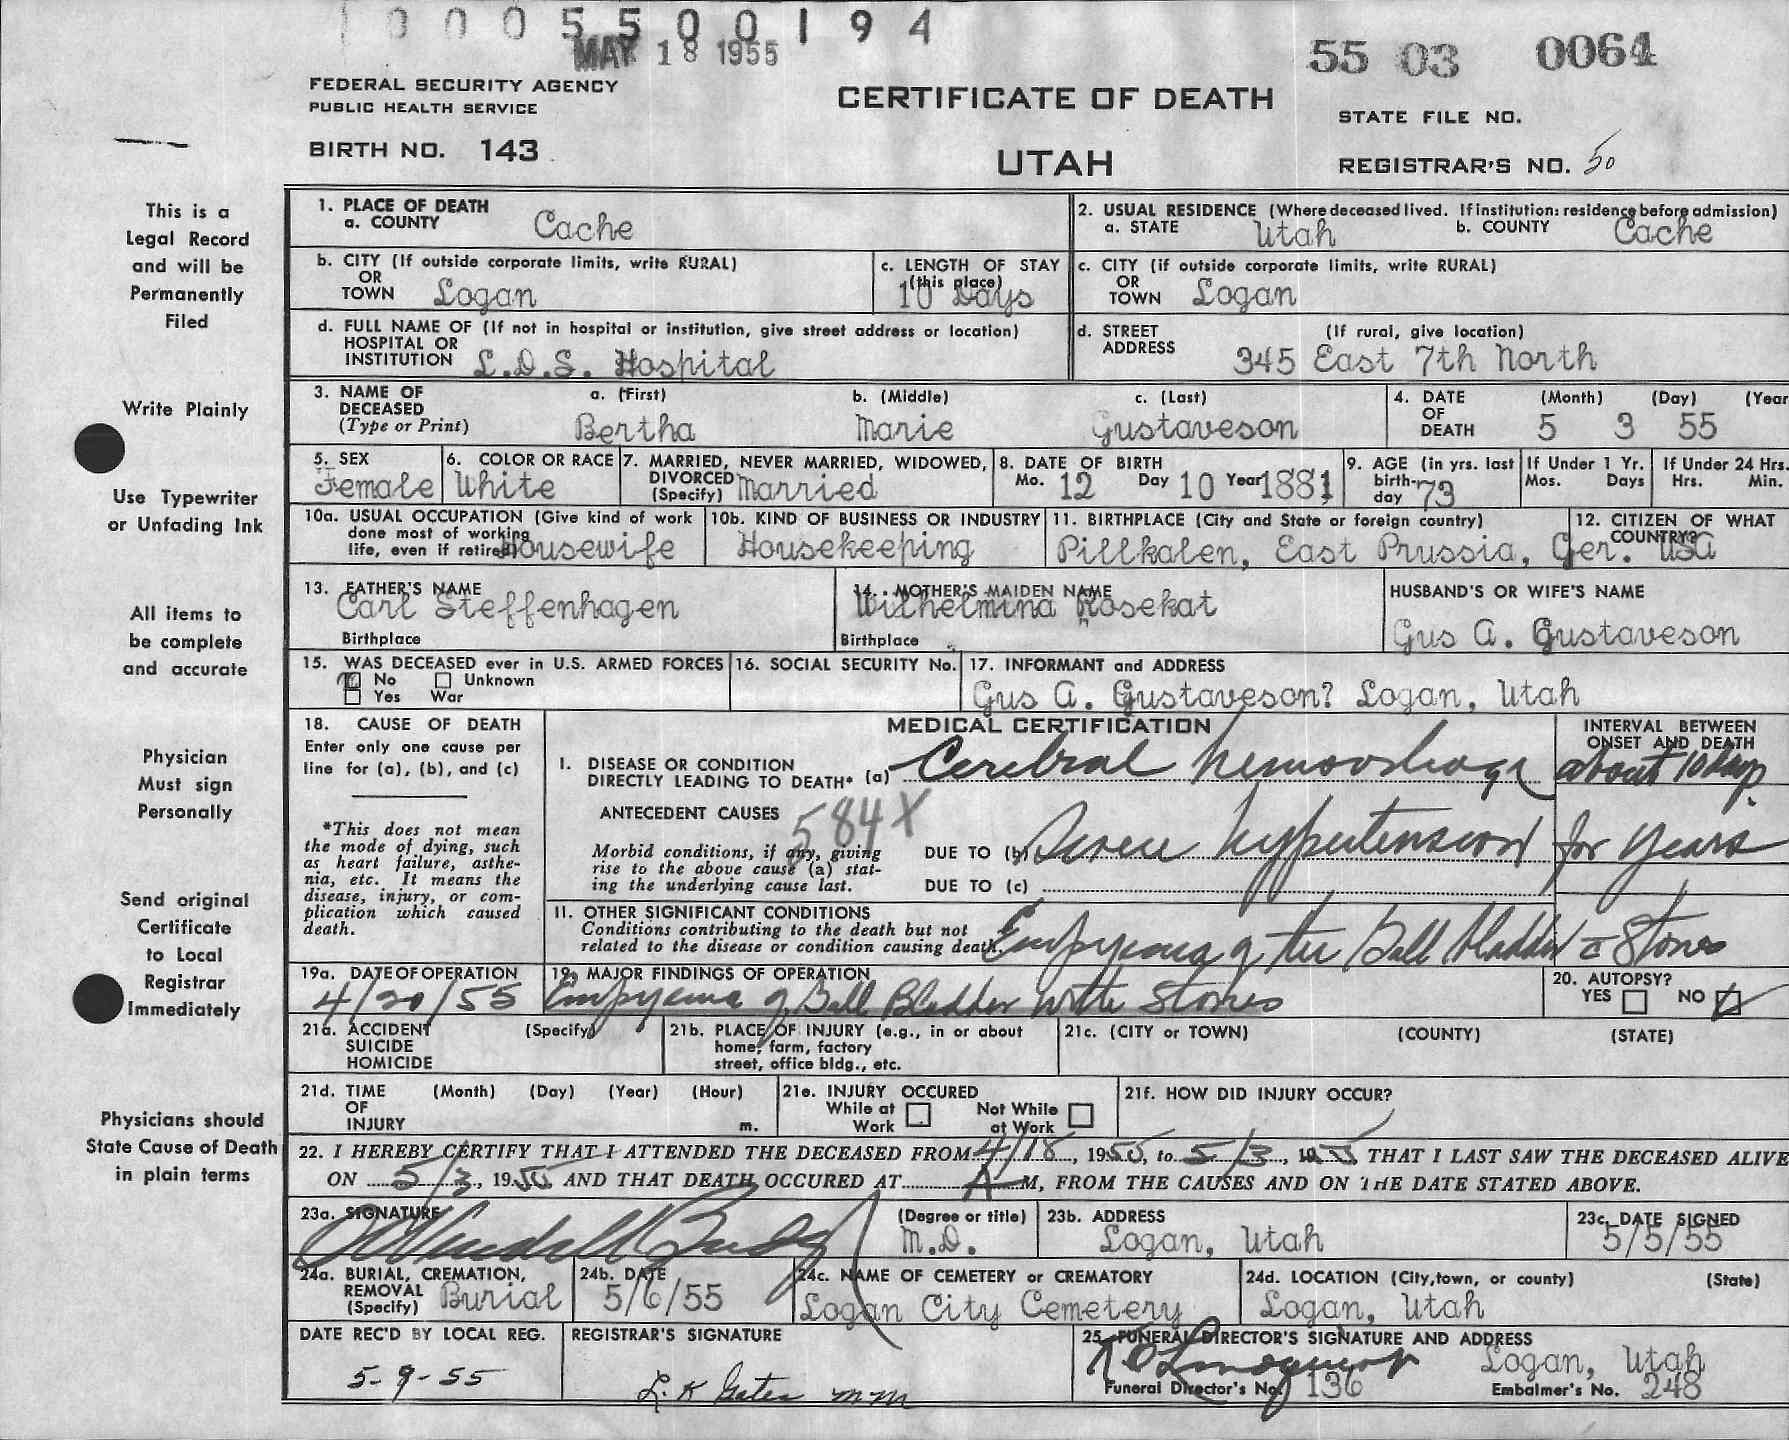 0 0 0 5 5 0 0 1 9 4
MAY 18 1955
55 03 0064
FEDERAL SECURITY AGENCY
PUBLIC HEALTH SERVICE
CERTIFICATE OF DEATH
STATE FILE NO.
BIRTH NO. 143
UTAH
REGISTRAR'S NO. 50
This is a
Legal Record
and will be
Permanently
Filed
Write Plainly
Use Typewriter
or Unfading Ink
All items to
be complete
and accurate
Physician
Must sign
Personally
Send original
Certificate
to Local
Registrar
Immediately
Physicians should
State Cause of Death
in plain terms
1. PLACE OF DEATH
a. COUNTY Cache
2. USUAL RESIDENCE (Where deceased lived. If institution: residence before admission)
a. STATE Utah b. COUNTY Cache
b. CITY (If outside corporate limits, write RURAL)
OR
TOWN Logan
c. LENGTH OF STAY
(this place)
10 Days
c. CITY (if outside corporate limits, write RURAL)
OR
TOWN Logan
d. FULL NAME OF (If not in hospital or institution, give street address or location)
HOSPITAL OR
INSTITUTION L.D.S. Hospital
d. STREET (If rural, give location)
ADDRESS 345 East 7th North
3. NAME OF a. (First) b. (Middle) c. (Last)
DECEASED
(Type or Print) Bertha Marie Gustaveson
4. DATE (Month) (Day) (Year
OF
DEATH 5 3 55
5. SEX
Female
6. COLOR OR RACE
White
7. MARRIED, NEVER MARRIED, WIDOWED,
DIVORCED
(Specify) Married
8. DATE OF BIRTH
Mo. 12 Day 10 Year 1881
9. AGE (in yrs. last
birth-
day 73
If Under 1 Yr.
Mos. Days
If Under 24 Hrs.
Hrs. Min.
10a. USUAL OCCUPATION (Give kind of work
done most of working
life, even if retired) Housewife
10b. KIND OF BUSINESS OR INDUSTRY
Housekeeping
11. BIRTHPLACE (City and State or foreign country)
Pillkalen, East Prussia, Ger.
12. CITIZEN OF WHAT
COUNTRY?
USA
13. FATHER'S NAME
Carl Steffenhagen
Birthplace
14. MOTHER'S MAIDEN NAME
Wilhelmina Rosekat
Birthplace
HUSBAND'S OR WIFE'S NAME
Gus A. Gustaveson
15. WAS DECEASED ever in U.S. ARMED FORCES
No Unknown
Yes War
16. SOCIAL SECURITY No.
17. INFORMANT and ADDRESS
Gus A. Gustaveson? Logan, Utah
18. CAUSE OF DEATH
Enter only one cause per
line for (a), (b), and (c)
*This does not mean
the mode of dying, such
as heart failure, asthe-
nia, etc. It means the
disease, injury, or com-
plication which caused
death.
MEDICAL CERTIFICATION
INTERVAL BETWEEN
ONSET AND DEATH
I. DISEASE OR CONDITION
DIRECTLY LEADING TO DEATH* (a) Cerebral hemorrhage about 10 days
ANTECEDENT CAUSES
584X
Morbid conditions, if any, giving
rise to the above cause (a) stat-
ing the underlying cause last.
DUE TO (b) Severe hypertension for years
DUE TO (c)
II. OTHER SIGNIFICANT CONDITIONS
Conditions contributing to the death but not
related to the disease or condition causing death. Empyema of the Gall Bladder c Stones
19a. DATE OF OPERATION
4/20/55
19. MAJOR FINDINGS OF OPERATION
Empyema of Gall Bladder with Stones
20. AUTOPSY?
YES NO
21a. ACCIDENT (Specify)
SUICIDE
HOMICIDE
21b. PLACE OF INJURY (e.g., in or about
home, farm, factory
street, office bldg., etc.
21c. (CITY or TOWN) (COUNTY) (STATE)
21d. TIME (Month) (Day) (Year) (Hour)
OF
INJURY m.
21e. INJURY OCCURED
While at Work
Not While at Work
21f. HOW DID INJURY OCCUR?
22. I HEREBY CERTIFY THAT I ATTENDED THE DECEASED FROM 4/18, 1955, to 5/3, 1955 THAT I LAST SAW THE DECEASED ALIVE
ON 5/3, 1955 AND THAT DEATH OCCURED AT A M, FROM THE CAUSES AND ON THE DATE STATED ABOVE.
23a. SIGNATURE (Degree or title)
M.D.
23b. ADDRESS
Logan, Utah
23c. DATE SIGNED
5/5/55
24a. BURIAL, CREMATION,
REMOVAL
(Specify) Burial
24b. DATE
5/6/55
24c. NAME OF CEMETERY or CREMATORY
Logan City Cemetery
24d. LOCATION (City, town, or county) (State)
Logan, Utah
DATE REC'D BY LOCAL REG.
5-9-55
REGISTRAR'S SIGNATURE
25. FUNERAL DIRECTOR'S SIGNATURE AND ADDRESS
Logan, Utah
Funeral Director's No. 136 Embalmer's No. 248